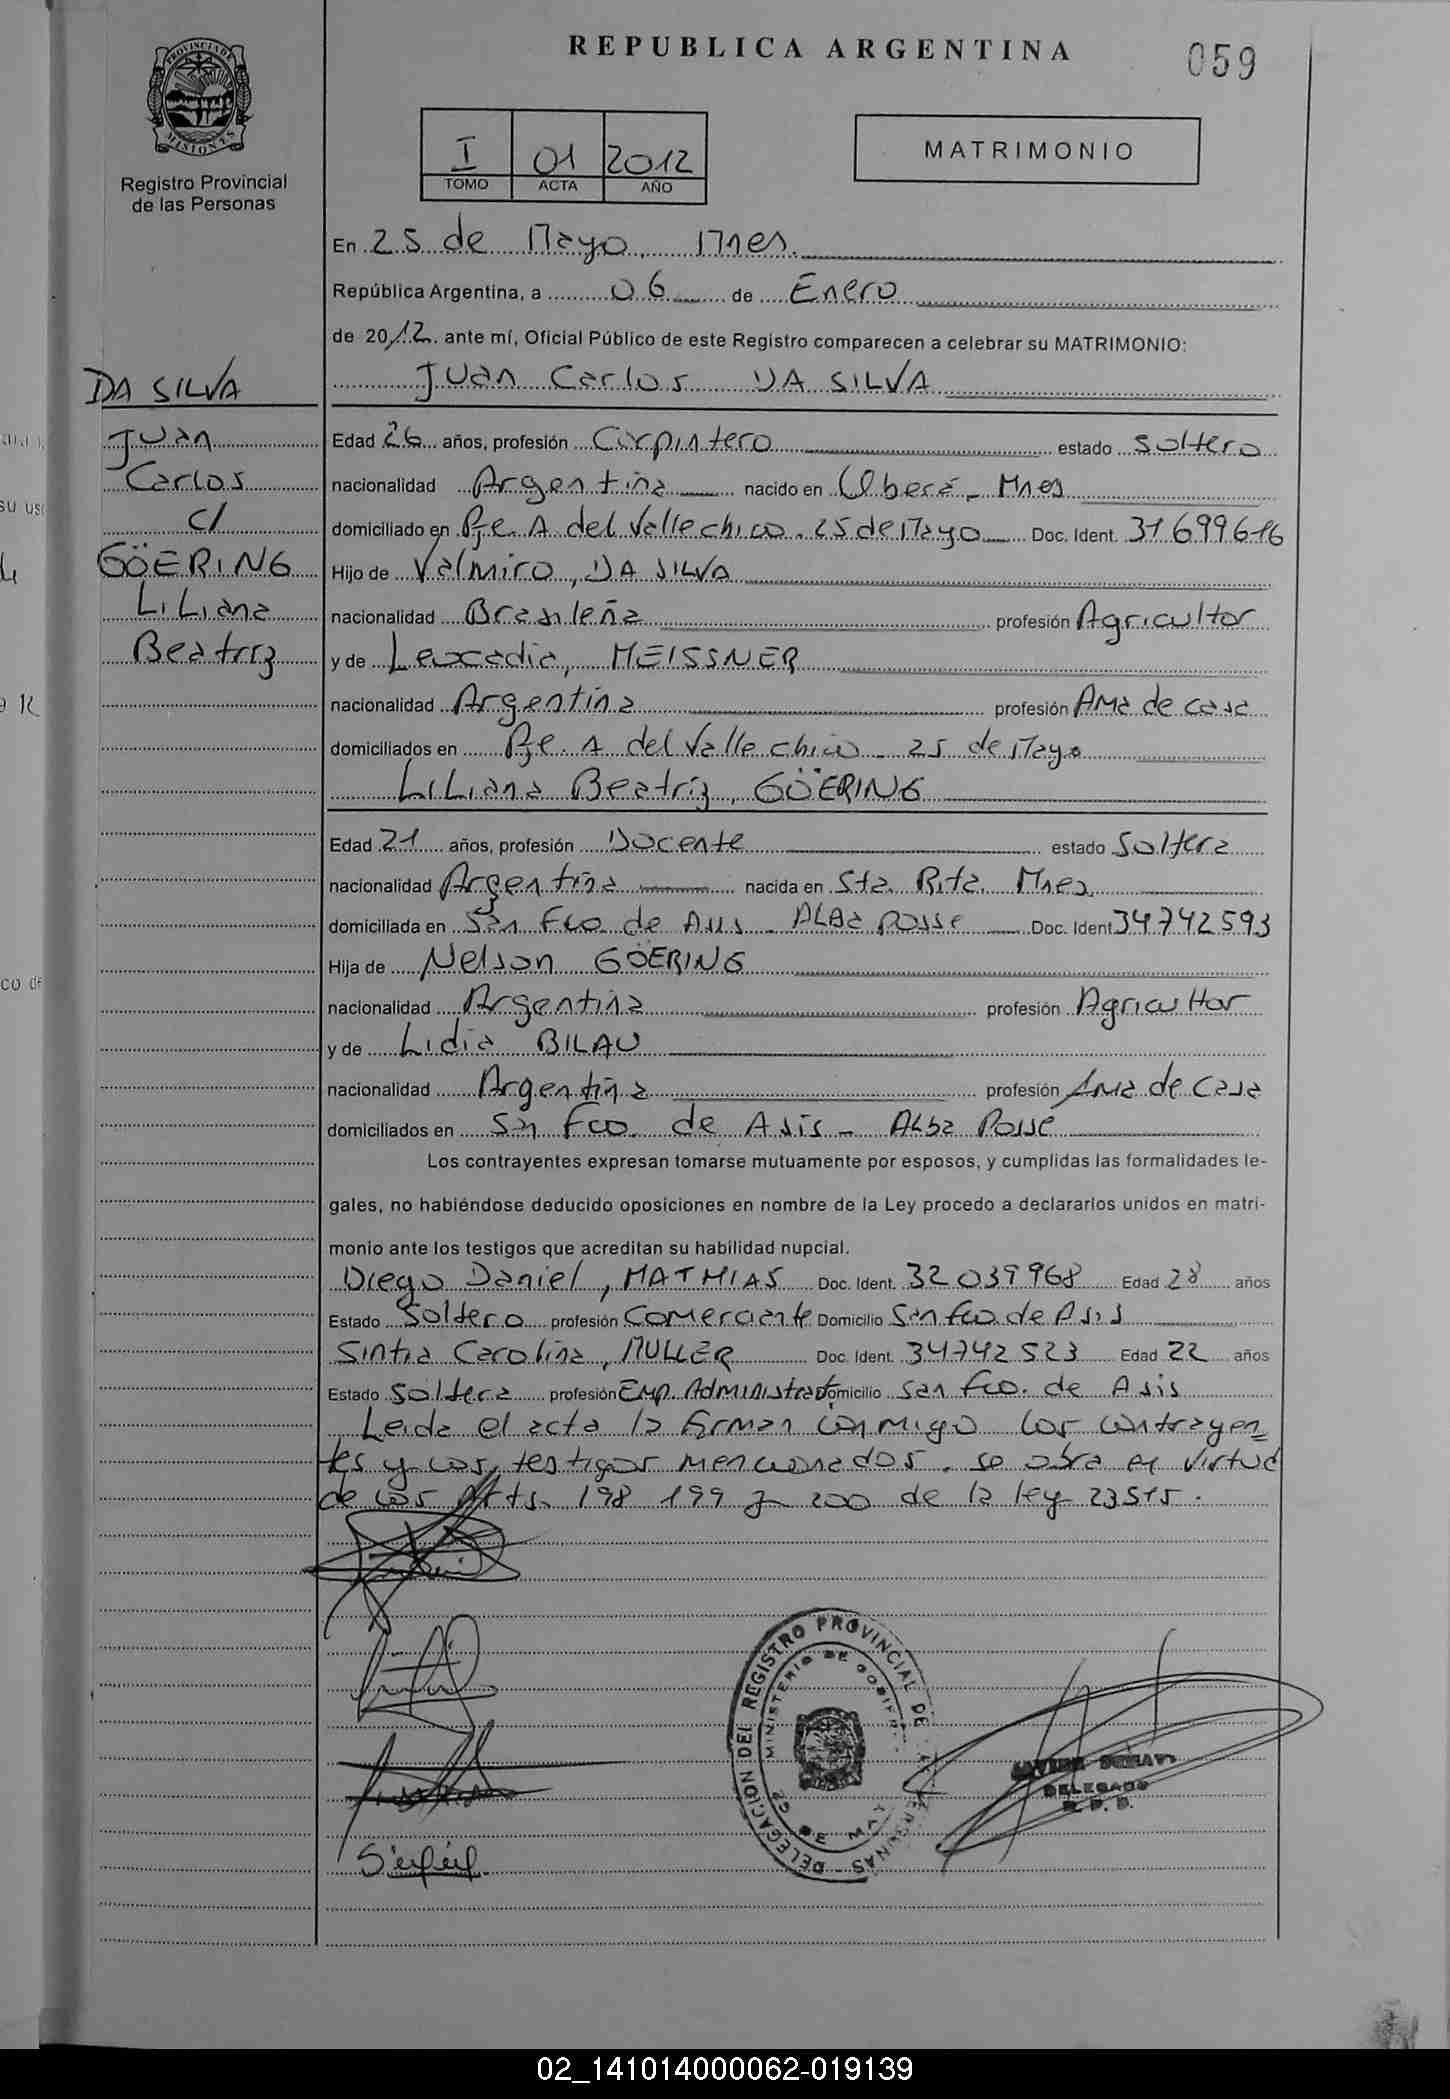 REPUBLICA ARGENTINA
059
PROVINCIA DE
MISIONES
Registro Provincial
de las Personas
I 01 2012
TOMO ACTA AÑO
MATRIMONIO
En 25 de Mayo, Mnes.
República Argentina, a 06 de Enero
de 2012. ante mí, Oficial Público de este Registro comparecen a celebrar su MATRIMONIO:
Juan Carlos DA SILVA
DA SILVA
Juan
Carlos
c/
GÖERING
Liliana
Beatriz
Edad 26 años, profesión Carpintero estado Soltero
nacionalidad Argentina nacido en Oberá, Mnes
domiciliado en Pje. A. del Valle chico. 25 de Mayo Doc. Ident. 31 699 616
Hijo de Valmiro, DA SILVA
nacionalidad Brasileña profesión Agricultor
y de Leocadia, MEISSNER
nacionalidad Argentina profesión Ama de casa
domiciliados en Pje. A del Valle chico - 25 de Mayo
Liliana Beatriz, GÖERING
Edad 21 años, profesión Docente estado Soltera
nacionalidad Argentina nacida en Sta. Rita. Mnes.
domiciliada en San Fco. de Asis - ALBA POSSE Doc. Ident 34 742 593
Hija de Nelson GÖERING
nacionalidad Argentina profesión Agricultor
y de Lidia BILAU
nacionalidad Argentina profesión Ama de Casa
domiciliados en Sn Fco. de Asis - Alba Posse
Los contrayentes expresan tomarse mutuamente por esposos, y cumplidas las formalidades le-
gales, no habiéndose deducido oposiciones en nombre de la Ley procedo a declararlos unidos en matri-
monio ante los testigos que acreditan su habilidad nupcial.
Diego Daniel, MATHIAS Doc. Ident. 32 039 968 Edad 28 años
Estado Soltero profesión Comerciante Domicilio San Fco de Asis
Sintia Carolina, MULLER Doc. Ident. 34742 523 Edad 22 años
Estado Soltera profesión Emp. Administrat Domicilio San Fco. de Asis
Leida el acta la firman conmigo los contrayen=
tes y los testigos mencionados. se obra en virtud
de los Arts. 198 199 y 200 de la ley 23515.
DELEGACION DEL REGISTRO PROVINCIAL DE
PERSONAS
MINISTERIO DE GOBIERNO
25 DE MAYO
DELEGADO
02_141014000062-019139